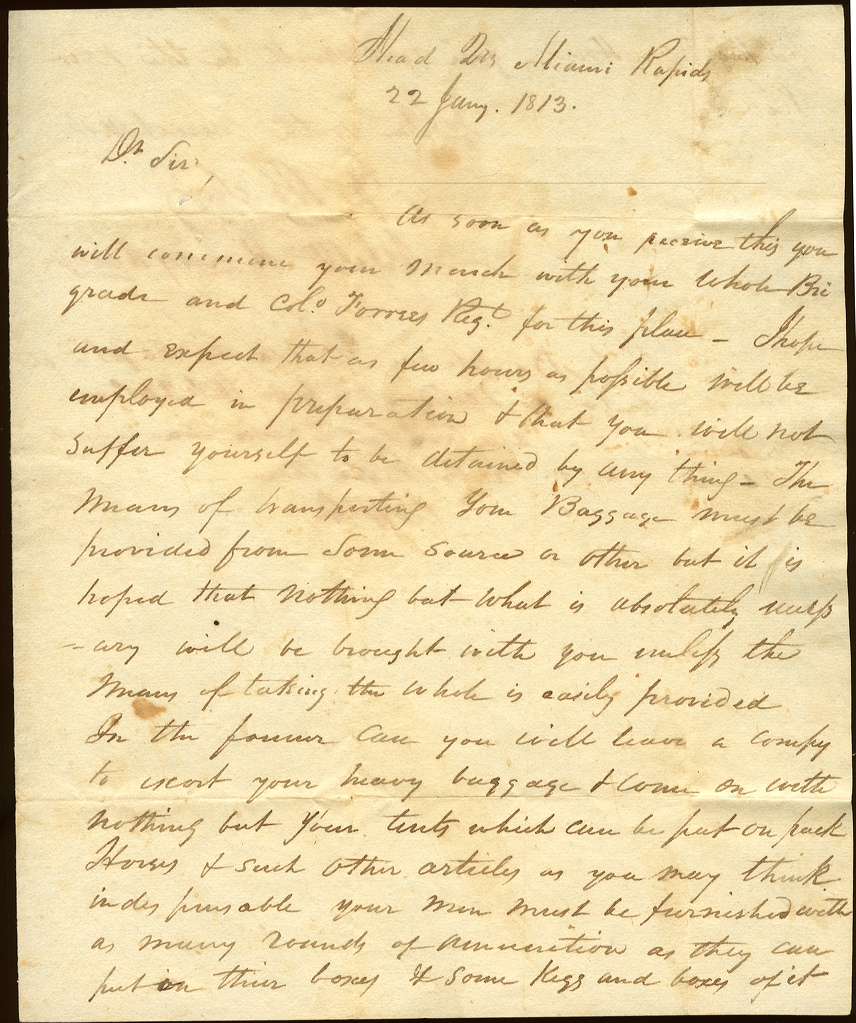 Head Qrs Miami Rapids
22 Jany. 1813.
Dr Sir,
As soon as you receive this you
will commence your march with your whole Bri
gade and Colo. Regt. for this place – I hope
and expect that as few hours as possible will be
employed in preparation & that you will not
suffer yourself to be detained by any thing – The
means of transporting your Baggage must be
provided from some source or other but it is
hoped that nothing but what is absolutely necess
–ary will be brought with you unless the
means of taking the whole is easily provided
In the former case you will leave a compy
to escort your heavy baggage & come on with
nothing but your tents which can be put on pack
Horses & such other articles as you may think
indespensable your men must be furnished with
as many rounds of amunition as they can
put in their boxes & some Kegs and boxes of it